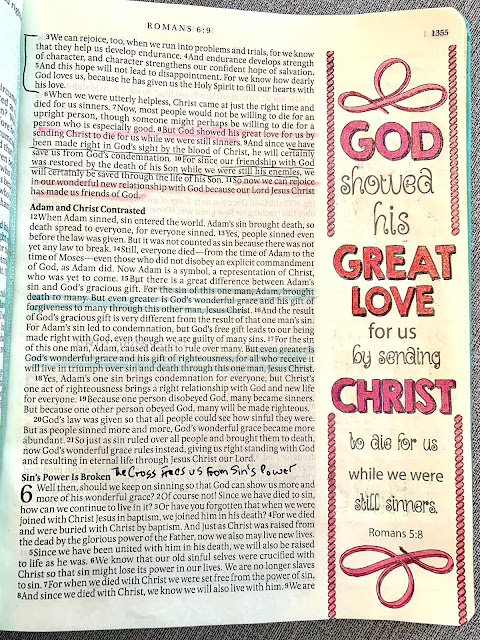 ROMANS 6:9
1355
3We can rejoice, too, when we run into problems and trials, for we know
that they help us develop endurance. 4And endurance develops strength
of character, and character strengthens our confident hope of salvation.
5And this hope will not lead to disappointment. For we know how dearly
God loves us, because he has given us the Holy Spirit to fill our hearts with
his love.
6When we were utterly helpless, Christ came at just the right time and
died for us sinners. 7Now, most people would not be willing to die for an
upright person, though someone might perhaps be willing to die for a
person who is especially good. 8But God showed his great love for us by
sending Christ to die for us while we were still sinners. 9And since we have
been made right in God's sight by the blood of Christ, he will certainly
save us from God's condemnation. 10For since our friendship with God
was restored by the death of his Son while we were still his enemies, we
will certainly be saved through the life of his Son. 11So now we can rejoice
in our wonderful new relationship with God because our Lord Jesus Christ
has made us friends of God.
Adam and Christ Contrasted
12When Adam sinned, sin entered the world. Adam's sin brought death, so
death spread to everyone, for everyone sinned. 13Yes, people sinned even
before the law was given. But it was not counted as sin because there was not
yet any law to break. 14Still, everyone died—from the time of Adam to the
time of Moses—even those who did not disobey an explicit commandment
of God, as Adam did. Now Adam is a symbol, a representation of Christ,
who was yet to come. 15But there is a great difference between Adam's
sin and God's gracious gift. For the sin of this one man, Adam, brought
death to many. But even greater is God's wonderful grace and his gift of
forgiveness to many through this other man, Jesus Christ. 16And the result
of God's gracious gift is very different from the result of that one man's sin.
For Adam's sin led to condemnation, but God's free gift leads to our being
made right with God, even though we are guilty of many sins. 17For the sin
of this one man, Adam, caused death to rule over many. But even greater is
God's wonderful grace and his gift of righteousness, for all who receive it
will live in triumph over sin and death through this one man, Jesus Christ.
18Yes, Adam's one sin brings condemnation for everyone, but Christ's
one act of righteousness brings a right relationship with God and new life
for everyone. 19Because one person disobeyed God, many became sinners.
But because one other person obeyed God, many will be made righteous.
20God's law was given so that all people could see how sinful they were.
But as people sinned more and more, God's wonderful grace became more
abundant. 21So just as sin ruled over all people and brought them to death,
now God's wonderful grace rules instead, giving us right standing with God
and resulting in eternal life through Jesus Christ our Lord.
Sin's Power Is Broken The Cross frees us from Sin's Power
6 Well then, should we keep on sinning so that God can show us more and
more of his wonderful grace? 2Of course not! Since we have died to sin,
how can we continue to live in it? 3Or have you forgotten that when we were
joined with Christ Jesus in baptism, we joined him in his death? 4For we died
and were buried with Christ by baptism. And just as Christ was raised from
the dead by the glorious power of the Father, now we also may live new lives.
5Since we have been united with him in his death, we will also be raised
to life as he was. 6We know that our old sinful selves were crucified with
Christ so that sin might lose its power in our lives. We are no longer slaves
to sin. 7For when we died with Christ we were set free from the power of sin.
8And since we died with Christ, we know we will also live with him. 9We are
GOD
showed
his
GREAT
LOVE
for us
by sending
CHRIST
to die for us
while we were
still sinners.
Romans 5:8